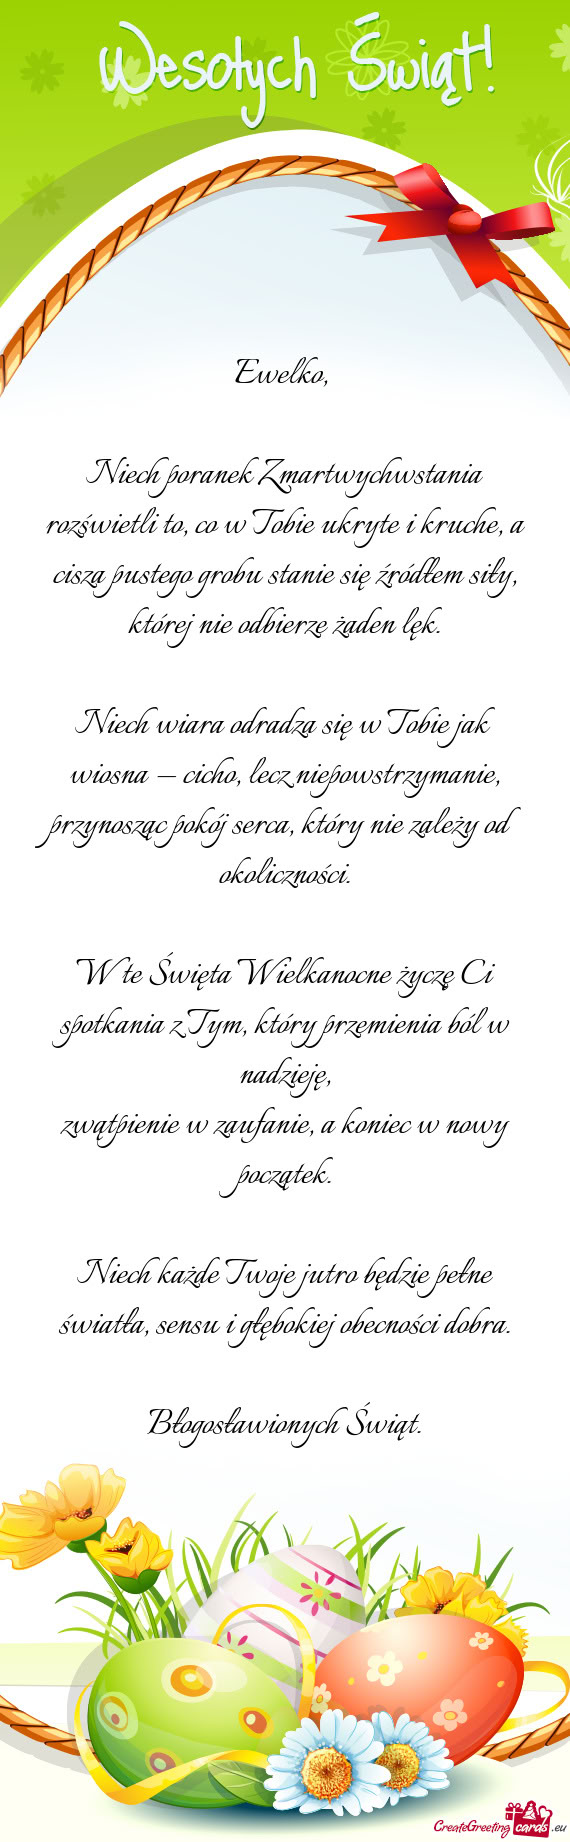 Wesołych Świąt!
Ewelko,
Niech poranek Zmartwychwstania
rozświetli to, co w Tobie ukryte i kruche, a
cisza pustego grobu stanie się źródłem siły,
której nie odbierze żaden lęk.
Niech wiara odradza się w Tobie jak
wiosna – cicho, lecz niepowstrzymanie,
przynosząc pokój serca, który nie zależy od
okoliczności.
W te Święta Wielkanocne życzę Ci
spotkania z Tym, który przemienia ból w
nadzieję,
zwątpienie w zaufanie, a koniec w nowy
początek.
Niech każde Twoje jutro będzie pełne
światła, sensu i głębokiej obecności dobra.
Błogosławionych Świąt.
CreateGreetingcards.eu